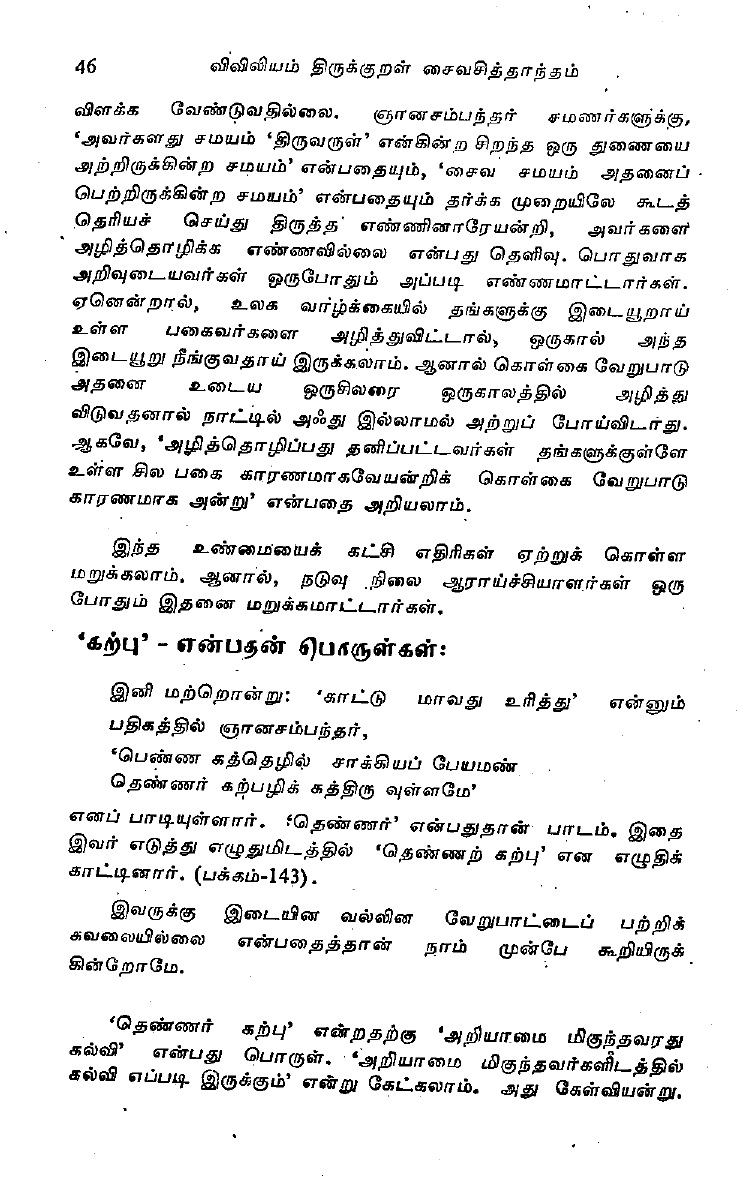 46 விவிலியம் திருக்குறள் சைவசித்தாந்தம்
விளக்க வேண்டுவதில்லை. ஞானசம்பந்தர் சமணர்களுக்கு,
‘அவர்களது சமயம் ‘திருவருள்’ என்கின்ற சிறந்த ஒரு துணையை
அற்றிருக்கின்ற சமயம்’ என்பதையும், ‘சைவ சமயம் அதனைப்
பெற்றிருக்கின்ற சமயம்’ என்பதையும் தர்க்க முறையிலே கூடத்
தெரியச் செய்து திருத்த எண்ணினாரேயன்றி, அவர்களை
அழித்தொழிக்க எண்ணவில்லை என்பது தெளிவு. பொதுவாக
அறிவுடையவர்கள் ஒருபோதும் அப்படி எண்ணமாட்டார்கள்.
ஏனென்றால், உலக வார்ழ்க்கையில் தங்களுக்கு இடையூறாய்
உள்ள பகைவர்களை அழித்துவிட்டால், ஒருகால் அந்த
இடையூறு நீங்குவதாய் இருக்கலாம். ஆனால் கொள்கை வேறுபாடு
அதனை உடைய ஒருசிலரை ஒருகாலத்தில் அழித்து
விடுவதனால் நாட்டில் அஃது இல்லாமல் அற்றுப் போய்விடாது.
ஆகவே, ‘அழித்தொழிப்பது தனிப்பட்டவர்கள் தங்களுக்குள்ளே
உள்ள சில பகை காரணமாகவேயன்றிக் கொள்கை வேறுபாடு
காரணமாக அன்று’ என்பதை அறியலாம்.
இந்த உண்மையைக் கட்சி எதிரிகள் ஏற்றுக் கொள்ள
மறுக்கலாம். ஆனால், நடுவு நிலை ஆராய்ச்சியாளர்கள் ஒரு
போதும் இதனை மறுக்கமாட்டார்கள்.
‘கற்பு’ – என்பதன் பொருள்கள்:
இனி மற்றொன்று: ‘காட்டு மாவது உரித்து’ என்னும்
பதிகத்தில் ஞானசம்பந்தர்,
‘பெண்ண கத்தெழில் சாக்கியப் பேயமண்
தெண்ணர் கற்பழிக் கத்திரு வுள்ளமே’
எனப் பாடியுள்ளார். ‘தெண்ணர்’ என்பதுதான் பாடம். இதை
இவர் எடுத்து எழுதுமிடத்தில் ‘தெண்ணற் கற்பு’ என எழுதிக்
காட்டினார். (பக்கம்-143).
இவருக்கு இடையின வல்லின வேறுபாட்டைப் பற்றிக்
கவலையில்லை என்பதைத்தான் நாம் முன்பே கூறியிருக்
கின்றோமே.
‘தெண்ணர் கற்பு’ என்றதற்கு ‘அறியாமை மிகுந்தவரது
கல்வி’ என்பது பொருள். ‘அறியாமை மிகுந்தவர்களிடத்தில்
கல்வி எப்படி இருக்கும்’ என்று கேட்கலாம். அது கேள்வியன்று.